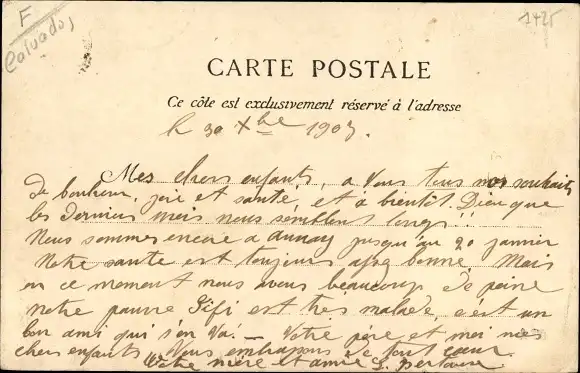 F
Calvados
1425
CARTE POSTALE
Ce côte est exclusivement réservé à l'adresse
le 30 Xbre 1903.
Mes chers enfants, a Vous tous nos souhaits
de bonheur, joie et santé, et à bientôt. Dieu que
les derniers mois nous semblent longs!!
Nous sommes encore a aunay jusqu'au 20 janvier
Notre santé est toujours assez bonne. Mais
en ce moment nous avons beaucoup de peine
notre pauvre Fifi est très malade, c'est un
bon ami qui s'en va! — Votre père et moi mes
chers enfants Vous embrassons de tout cœur.
Votre mère et amie